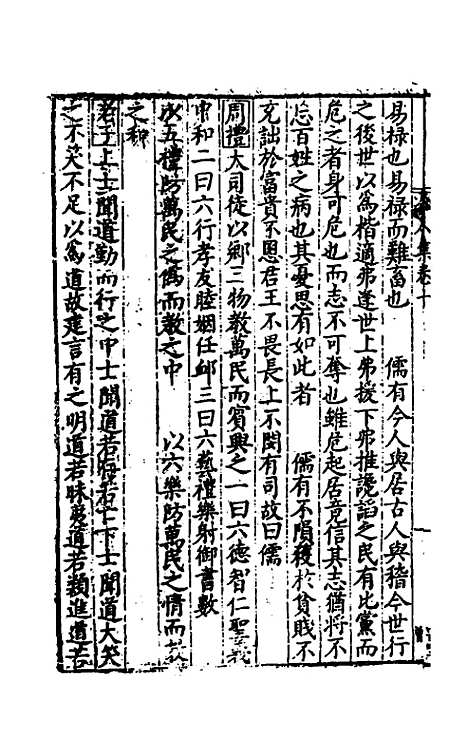 易禄也易禄而難畜也　　儒有今人與居古人與稽今世行
之後世以為楷適弗逢世上弗援下弗推讒謟之民有比黨而
危之者身可危也而志不可奪也雖危起居竟信其志猶將不
忘百姓之病也其憂思有如此者　　儒有不隕穫於貧賤不
充詘於富貴不慁君王不畏長上不閔有司故曰儒
周禮大司徒以鄉三物教萬民而賓興之一曰六德智仁聖義
中和二曰六行孝友睦婣任䘏三曰六藝禮樂射御書數
以五禮防萬民之偽而教之中　　以六樂防萬民之情而教
之和
老子上士聞道勤而行之中士聞道若存若亡下士聞道大笑
之不笑不足以為道故建言有之明道若昧夷道若類進道若
集卷十